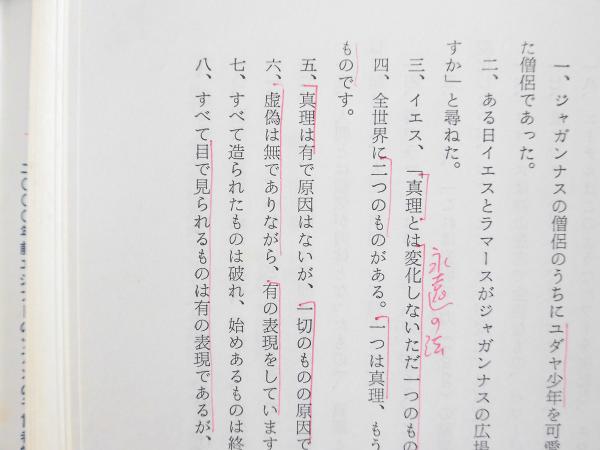 一、ジャガンナスの僧侶のうちにユダヤ少年を可愛
た僧侶であった。
二、ある日イエスとラマースがジャガンナスの広場
すか」と尋ねた。
三、イエス、「真理とは変化しないただ一つのもの
永遠の法
四、全世界に二つのものがある。一つは真理、もう
ものです。
五、真理は有で原因はないが、一切のものの原因で
六、虚偽は無でありながら、有の表現をしています
七、すべて造られたものは破れ、始めあるものは終
八、すべて目で見られるものは有の表現であるが、